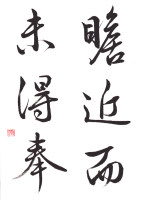 瞻近而
未得奉